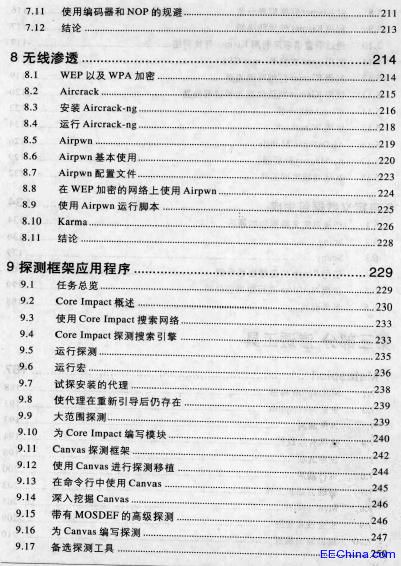 7.11 使用编码器和 NOP 的规避 211
7.12 结论 213
8 无线渗透 214
8.1 WEP 以及 WPA 加密 214
8.2 Aircrack 215
8.3 安装 Aircrack-ng 216
8.4 运行 Aircrack-ng 218
8.5 Airpwn 219
8.6 Airpwn 基本使用 220
8.7 Airpwn 配置文件 223
8.8 在 WEP 加密的网络上使用 Airpwn 224
8.9 使用 Airpwn 运行脚本 225
8.10 Karma 226
8.11 结论 228
9 探测框架应用程序 229
9.1 任务总览 229
9.2 Core Impact 概述 230
9.3 使用 Core Impact 搜索网络 233
9.4 Core Impact 探测搜索引擎 233
9.5 运行探测 235
9.6 运行宏 236
9.7 试探安装的代理 238
9.8 使代理在重新引导后仍存在 239
9.9 大范围探测 239
9.10 为 Core Impact 编写模块 240
9.11 Canvas 探测框架 242
9.12 使用 Canvas 进行探测移植 244
9.13 在命令行中使用 Canvas 245
9.14 深入挖掘 Canvas 246
9.15 带有 MOSDEF 的高级探测 246
9.16 为 Canvas 编写探测 248
9.17 备选探测工具
EEChina.com